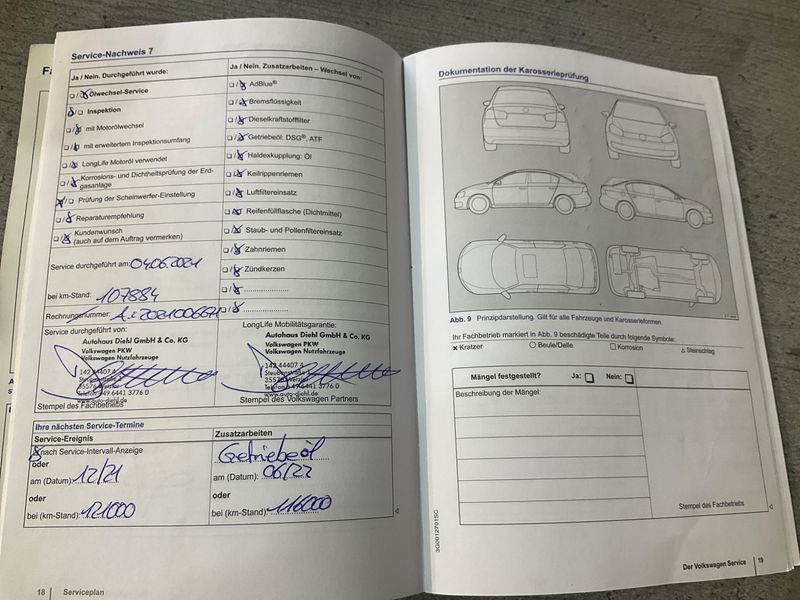 Service-Nachweis 7
Ja / Nein. Durchgeführt wurde:
Ölwechsel-Service
Inspektion
mit Motorölwechsel
mit erweitertem Inspektionsumfang
LongLife Motoröl verwendet
Korrosions- und Dichtheitsprüfung der Erd-
gasanlage
Prüfung der Scheinwerfer-Einstellung
Reparaturempfehlung
Kundenwunsch
(auch auf dem Auftrag vermerken)
Service durchgeführt am: 04.06.2021
bei km-Stand: 107884
Rechnungsnummer:
Service durchgeführt von:
Autohaus Diehl GmbH & Co. KG
Volkswagen PKW
Volkswagen Nutzfahrzeuge
142 44407 A
Telefon +49 6441 3776 0
www.auto-diehl.de
Stempel des Fachbetriebs
Ja / Nein. Zusatzarbeiten – Wechsel von:
AdBlue®
Bremsflüssigkeit
Dieselkraftstofffilter
Getriebeöl: DSG®, ATF
Haldexkupplung: Öl
Keilrippenriemen
Luftfiltereinsatz
Reifenfüllflasche (Dichtmittel)
Staub- und Pollenfiltereinsatz
Zahnriemen
Zündkerzen
LongLife Mobilitätsgarantie:
Autohaus Diehl GmbH & Co. KG
Volkswagen PKW
Volkswagen Nutzfahrzeuge
142 44407 A
Telefon +49 6441 3776 0
www.auto-diehl.de
Stempel des Volkswagen Partners
Ihre nächsten Service-Termine
Service-Ereignis
nach Service-Intervall-Anzeige
oder
am (Datum): 12/21
oder
bei (km-Stand): 121000
Zusatzarbeiten
Getriebeöl
am (Datum): 06/22
oder
bei (km-Stand): 116000
18 | Serviceplan
Dokumentation der Karosserieprüfung
Abb. 9 Prinzipdarstellung. Gilt für alle Fahrzeuge und Karosserieformen.
Ihr Fachbetrieb markiert in Abb. 9 beschädigte Teile durch folgende Symbole:
× Kratzer ○ Beule/Delle □ Korrosion △ Steinschlag
Mängel festgestellt? Ja: Nein:
Beschreibung der Mängel:
Stempel des Fachbetriebs
3G0012701SC
Der Volkswagen Service | 19